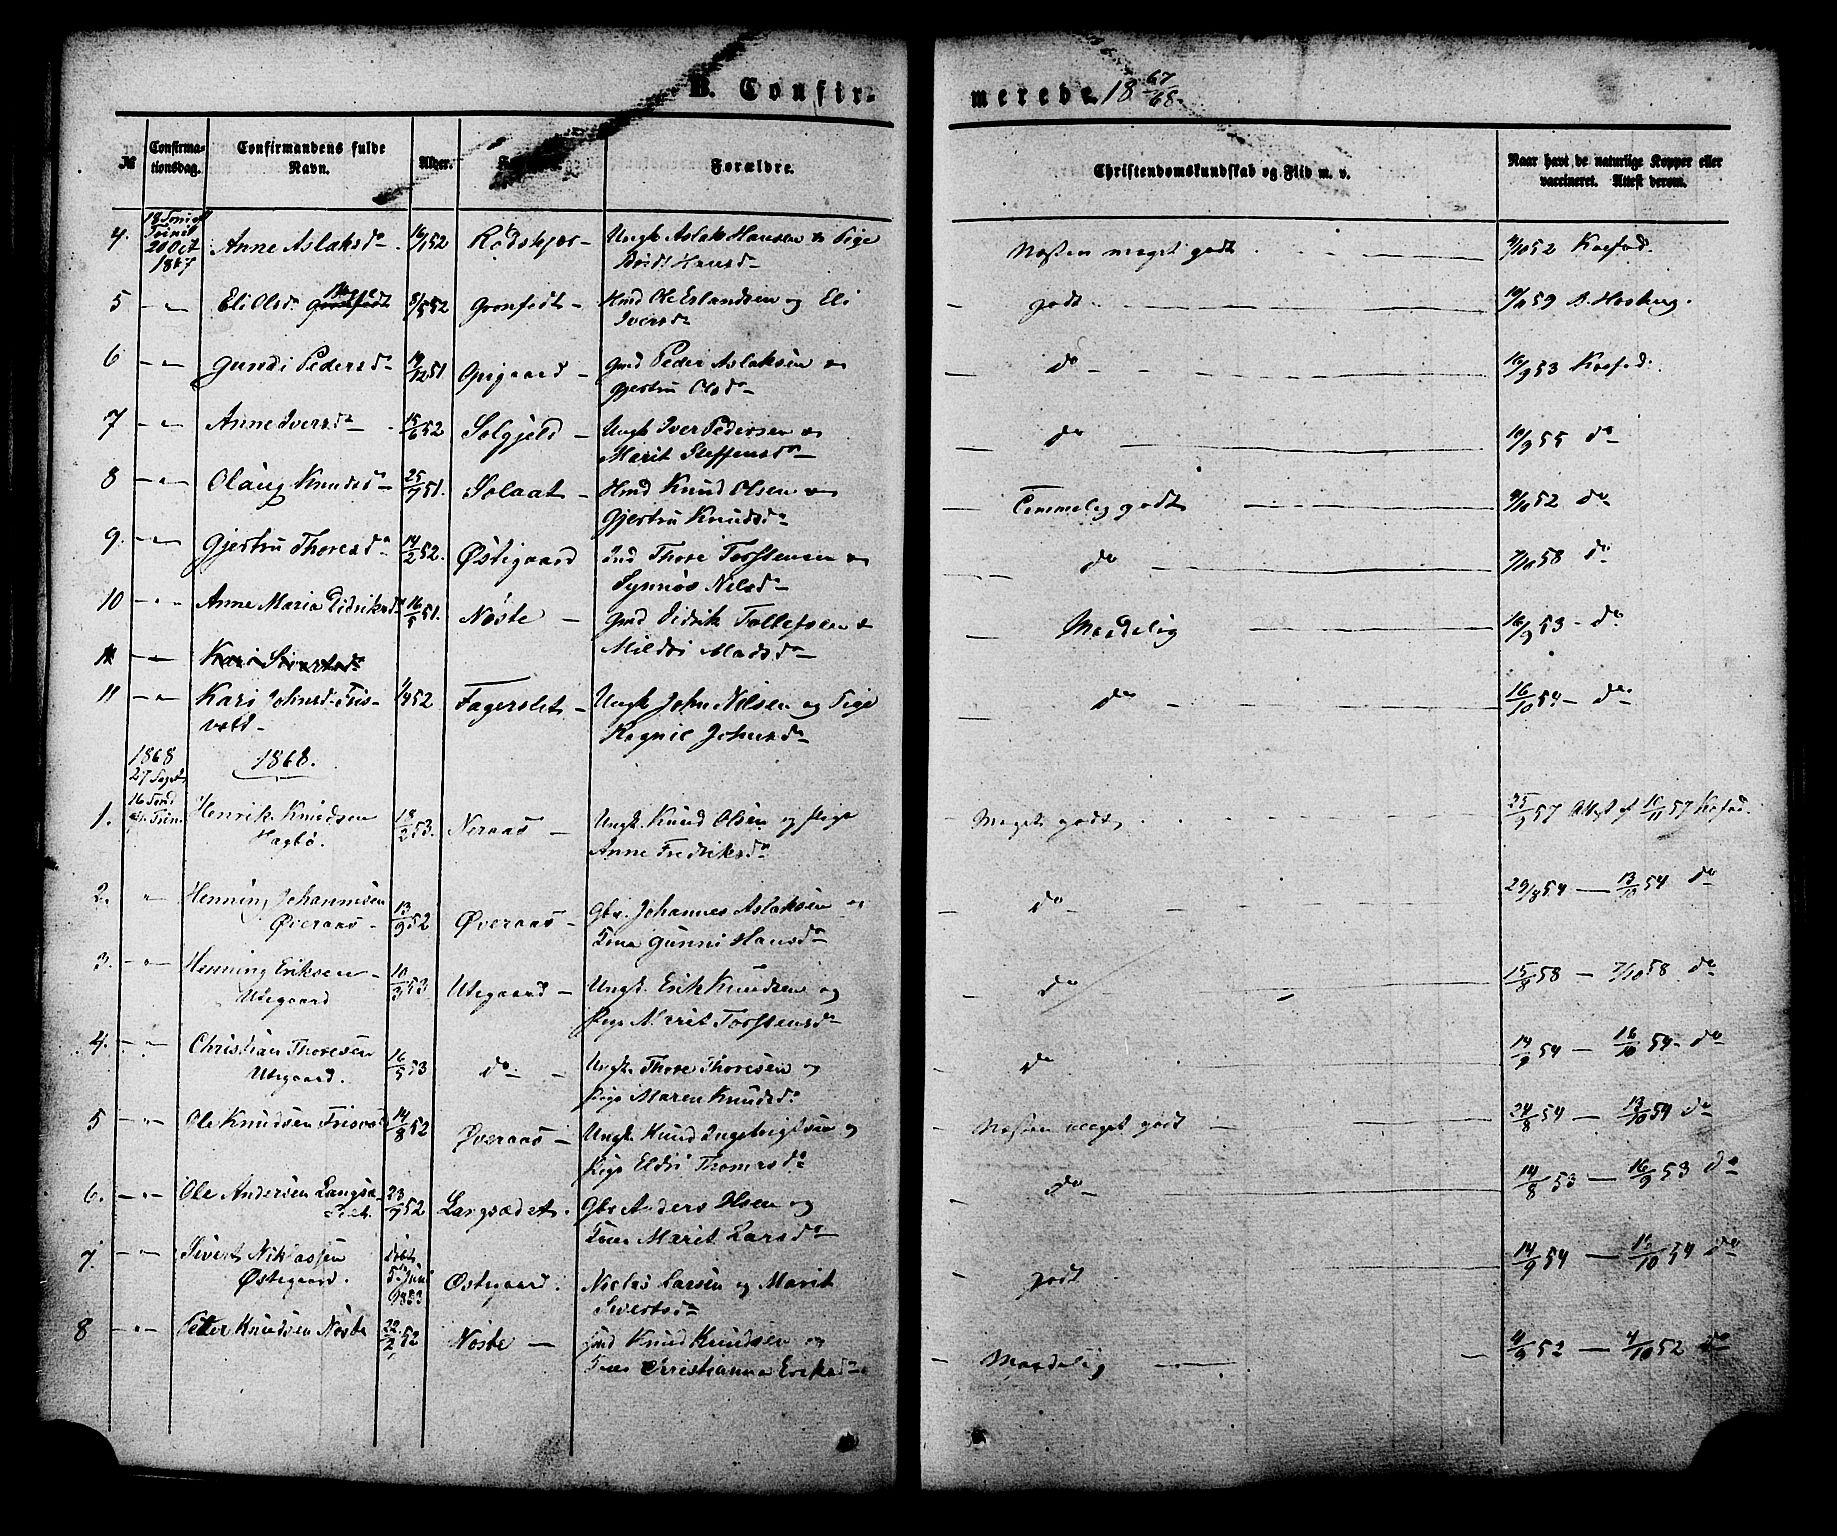 B. Confir-
merede 18 67/68.
№ Confirma-tionsdag. Confirmandens fulde Navn. Alder. Forældre. Christendomskundskab og Flid m. v. Naar havt de naturlige Kopper eller vaccineret. Attest derom.
4. 20 Oct 1867 Anne Aslaksda 16/1 52 Rødskjær Ungk Aslak Hansen & Pige
Hansda Næsten meget godt 9/10 52 Koefod.
5 Eli Olsda 8/5 52 Gronfedt Hmd Ole Erlandsen og Eli
Iversda godt 59
6 Gundi Pedersda 12 51 Opigaard Gmd Peder Aslaksen &
Gjertru Olsda do 16/9 53 Koefod.
7 Anne Iversda 15/6 52 Solgjeld Ungk Iver Pedersen &
Marit Steffensda do 10/9 55 do
8 Olaug Knudsda 25/7 51. Solaat Hmd Knud Olsen &
Gjertru Knudsda Temmelig godt 9/10 52 do
9. Gjertru Thoresda 14/2 52. Østigaard Ind Thore Torstensen &
Synnøs Nilsda do 7/10 58 do
10 Anne Maria Didriksda 16/5 51. Nøste Gmd Didrik Tollefsen &
Mildri Madsda Maadelig 16/9 53 do
11 Kari Sivertsda
11 Kari Johnsd. Fris-
vold 52 Fagerslet Ungk John Nilsen og Pige
Ragnil Johnsda do 16/10 54 do
1868 1868.
27 Sept
16 Sønd
e. Trin
1. Henrik Knudsen
Hagbø. 18/2 53. Neraas Ungk. Knud Olsen og Pige
Anne Fredriksda Meget godt 25/9 57 Attest af 10/11 57 Kofod.
2. Henning Johannesen
Øveraas 13/9 52 Øveraas Gbr. Johannes Aslaksen &
Kone Gunni Hansda do 29/8 54 — 13/10 54 do
3. Henning Eriksen
Utegaard 10/3 53 Utegaard Ungk. Erik Knudsen og
Pige Marit Torstensda do 15/8 58 — 7/10 58. do
4. Christian Thoresen
Utegaard. 16/5 53 do Ungk. Thore Thoresen og
Pige Maren Knudsda do 14/9 54 — 16/10 54. do
5 Ole Knudsen Frisvold 14/8 52 Øveraas Ungk Knud Ingebrigtsen og
Pige Eldri Thomasda Næsten meget godt 24/8 54 — 13/10 54 do
6. Ole Andersen Langsæ-
det. 23/7 52 Langsædet. Gbr Anders Olsen og
Kone Marit Larsda do 14/8 53 — 16/9 53 do
7. Sivert Niklassen
Østegaard. døbt
5 Juni
1853 Østegaard. Niclas Larsen og Marit
Sivertsda godt 14/9 54 — 16/10 54 do
8 Petter Knudsen Nøste 22/2 52 Nøste Gmd Knud Knudsen og
Kone Christianna Eriksda Maadelig 4/9 52 — 4/10 52 do